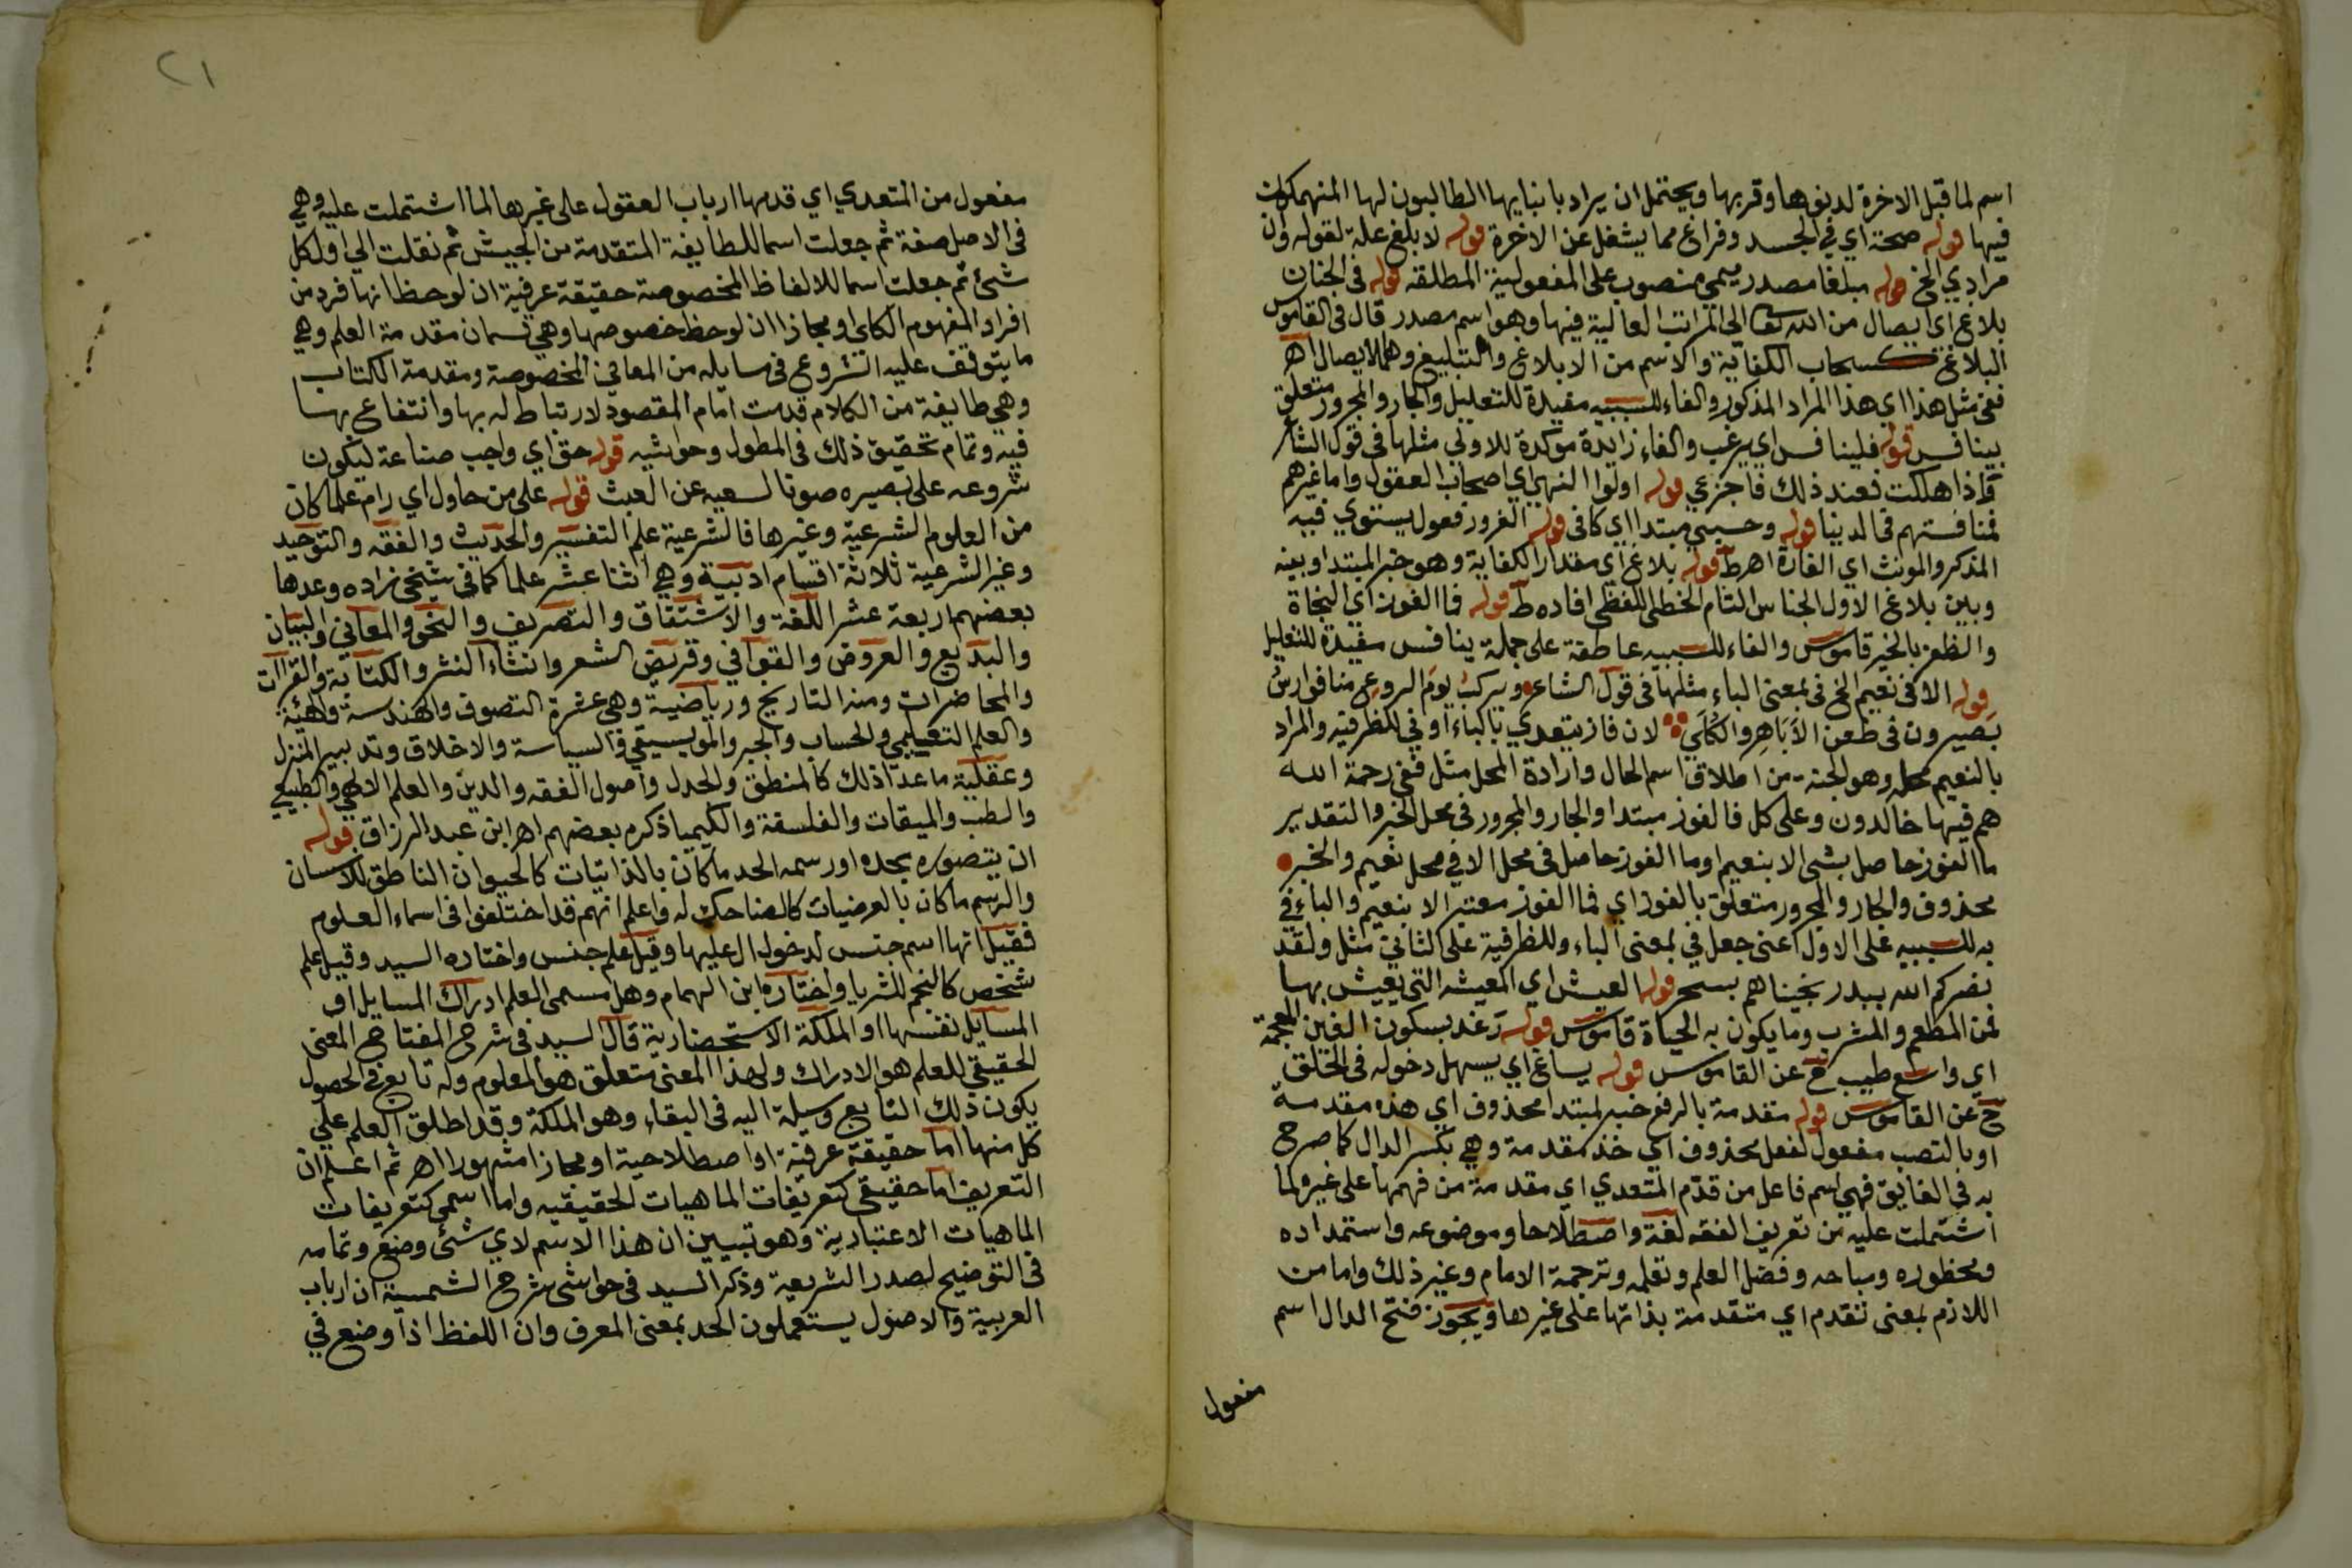 اسم لما قبل الاخرة لدنوها وقربها ويحتمل ان يراد بابنايها الطالبون لها المنهمكون
فيها قوله صحة اي في الجسد وفراغ مما يشغل عن الاخرة قوله لابلغ علة لقوله ون
مرادي الخ قوله مبلغا مصدر ميمي منصوب على المفعولية المطلقه قوله في الجنان
بلاغ اي ايصال من الله تعا الى المراتب العالية فيها وهو اسم مصدر قال في القاموس
البلاغ كسحاب الكفاية والاسم من الابلاغ والتبليغ وهما الايصال اه
ففي مثل هذا اي هذا المراد المذكور والفاء للسببيه مفيدة للتعليل والجار والمجرور متعلق
بينافس قوله فلينافس اي يرغب والفاء زايدة موكدة للاولى مثلها في قول الشاعر
واذا هلكت فعند ذلك فاجزعي قوله اولوا النهى اي اصحاب العقول واما غيرهم
فمنافستهم في الدنيا قوله وحسبي مبتدا اي كافي قوله الغرور فعول يستوي فيه
المذكر والمونث اي الغارة اه ط قوله بلاغ اي مقدار الكفاية وهو خبر المبتدا وبينه
وبين بلاغ الاول الجناس التام الخطي اللفظي افاده ط قوله فما الفوز اي النجاة
والظفر بالخير قاموس والفاء للسببيه عاطفة على جملة ينافس مفيدة للتعليل
قوله الا في نعيم الخ في بمعنى الباء مثلها في قول الشاعر ويركب يوم الروع منا فوارس
بصيرون في طعن الاباهر والكلى لان فاز يتعدي بالباء او في للظرفيه والمراد
بالنعيم محله وهو الجنة من اطلاق اسم الحال وارادة المحل مثل ففي رحمة الله
هم فيها خالدون وعلى كل فالفوز مبتدا والجار والمجرور في محل الخبر والتقدير
ما الفوز حاصل بشى الا بنعيم او ما الفوز حاصل في محل الا في محل نعيم والخبر
محذوف والجار والمجرور متعلق بالفوز اي فما الفوز معتبر الا بنعيم والباء في
به للسببيه على الاول اعنى جعل في بمعنى الباء وللظرفية على الثاني مثل ولقد
نصركم الله ببدر نجيناهم بسحر قوله العيش اي المعيشه التي يعيش بها
من المطعم والمشرب وما يكون به الحياة قاموس قوله رغد بسكون الغين المعجمة
اي واسع طيب ح عن القاموس قوله يساغ اي يسهل دخوله في الحلق
ح عن القاموس قوله مقدمة بالرفع خبر لمبتدا محذوف اي هذه مقدمة
او بالنصب مفعول لفعل محذوف اي خذ مقدمة وهي بكسر الدال كما صرح
به في الفايق فهي اسم فاعل من قدم المتعدي اي مقدمة من فهمها على غيره لما
اشتملت عليه من تعريف الفقه لغة واصطلاحا وموضوعه واستمداده
ومحظوره ومباحه وفضل العلم وتعلمه وترجمة الامام وغير ذلك واما من
اللازم بمعنى تقدم اي متقدمة بذاتها على غيرها ويجوز فتح الدال اسم
مفعول
٢١
مفعول من المتعدي اي قدمها ارباب العقول على غيرها لما اشتملت عليه وهي
في الاصل صفة ثم جعلت اسما للطايفة المتقدمة من الجيش ثم نقلت الى اول كل
شئ ثم جعلت اسما للالفاظ المخصوصة حقيقة عرفية ان لوحظ انها فرد من
افراد المفهوم الكلي او مجازا ان لوحظ خصوصها وهي قسمان مقدمة العلم وهي
ما يتوقف عليه الشروع في مسايله من المعاني المخصوصة ومقدمة الكتاب
وهي طايفة من الكلام قدمت امام المقصود لارتباط له بها وانتفاع بها
فيه وتمام تحقيق ذلك في المطول وحواشيه قوله حق اي واجب صناعة ليكون
شروعه على بصيره صونا لسعيه عن العبث قوله على من حاول اي رام علما كان
من العلوم الشرعية وغيرها فالشرعية علم التفسير والحديث والفقه والتوحيد
وغير الشرعية ثلاثة اقسام ادبية وهي اثنا عشر علما كما في شيخى زاده وعدها
بعضهم اربعة عشر اللغة والاشتقاق والتصريف والنحو والمعاني والبيان
والبديع والعروض والقوافي وقريض الشعر وانشاء النثر والكتابة والقراات
والمحاضرات ومنه التاريج ورياضية وهي عشرة التصوف والهندسة والهيئة
والعلم التعليمي والحساب والجبر والموسيقي والسياسة والاخلاق وتدبير المنزل
وعقلية ما عدا ذلك كالمنطق والجدل واصول الفقه والدين والعلم الالهي والطبيعي
والطب والميقات والفلسفة والكيميا ذكره بعضهم اه ابن عبد الرزاق قوله
ان يتصوره بحده او رسمه الحد ما كان بالذاتيات كالحيوان الناطق للانسان
والرسم ما كان بالعرضيات كالضاحك له واعلم انهم قد اختلفوا في اسماء العلوم
فقيل انها اسم جنس لدخول ال عليها وقيل علم جنس واختاره السيد وقيل علم
شخص كالنجم للثريا واختاره ابن الهمام وهل مسمى العلم ادراك المسايل او
المسايل نفسها او الملكة الاستحضارية قال السيد في شرح المفتاح المعنى
الحقيقي للعلم هو الادراك ولهذا المعنى متعلق هو المعلوم وله تابع في الحصول
يكون ذلك التابع وسيلة اليه في البقاء وهو الملكة وقد اطلق العلم على
كل منها اما حقيقة عرفية او اصطلاحية او مجازا مشهورا اه ثم اعلم ان
التعريف اما حقيقي كتعريفات الماهيات الحقيقيه واما اسمي كتعريفات
الماهيات الاعتبارية وهو تبيين ان هذا الاسم لاي شئ وضع وتمامه
في التوضيح لصدر الشريعة وذكر السيد في حواشى شرح الشمسية ان ارباب
العربية والاصول يستعملون الحد بمعنى المعرف وان اللفظ اذا وضع في